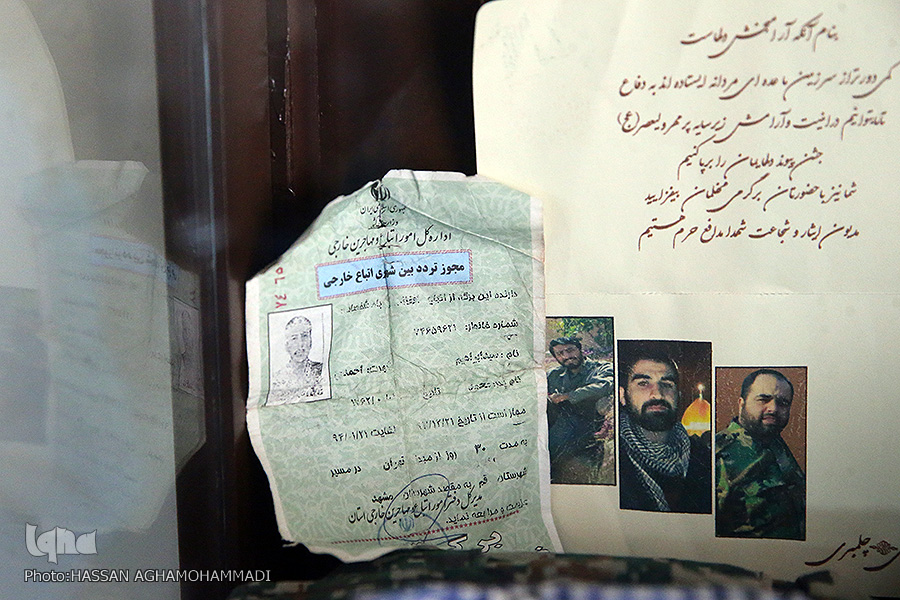 بنام آنکه آرامبخش دلهاست
کمی دورتر از سرزمین ما عده ای مردانه ایستاده اند به دفاع
تا بتوانیم در امنیت و آرامش زیر سایه پر مهر ولیعصر (عج)
جشن پیوند دلهایمان را برپا کنیم
شما نیز با حضورتان بر گرمی محفلمان بیفزایید
مدیون ایثار و شجاعت شهدا مدافع حرم هستیم
جمهوری اسلامی ایران
وزارت کشور
اداره کل امور اتباع و مهاجرین خارجی
مجوز تردد بین شهری اتباع خارجی
دارنده این برگه، از اتباع
شماره خانوار: ۷۴۶۵۹۶۲۱
نام : سیدابراهیم احمدی
نام پدر: محمود
مجاز است از تاریخ ۹۳/۱۲/۲۱ لغایت ۹۴/۰۱/۲۱
به مدت ۳۰ روز از مبدا تهران در مسیر
شهرستان قم به مقصد شهرستان مشهد
عزیمت و مراجعه نماید.
مدیرکل دفتر امور اتباع و مهاجرین خارجی استان
چلبری
iqna
Photo:HASSAN AGHAMOHAMMADI